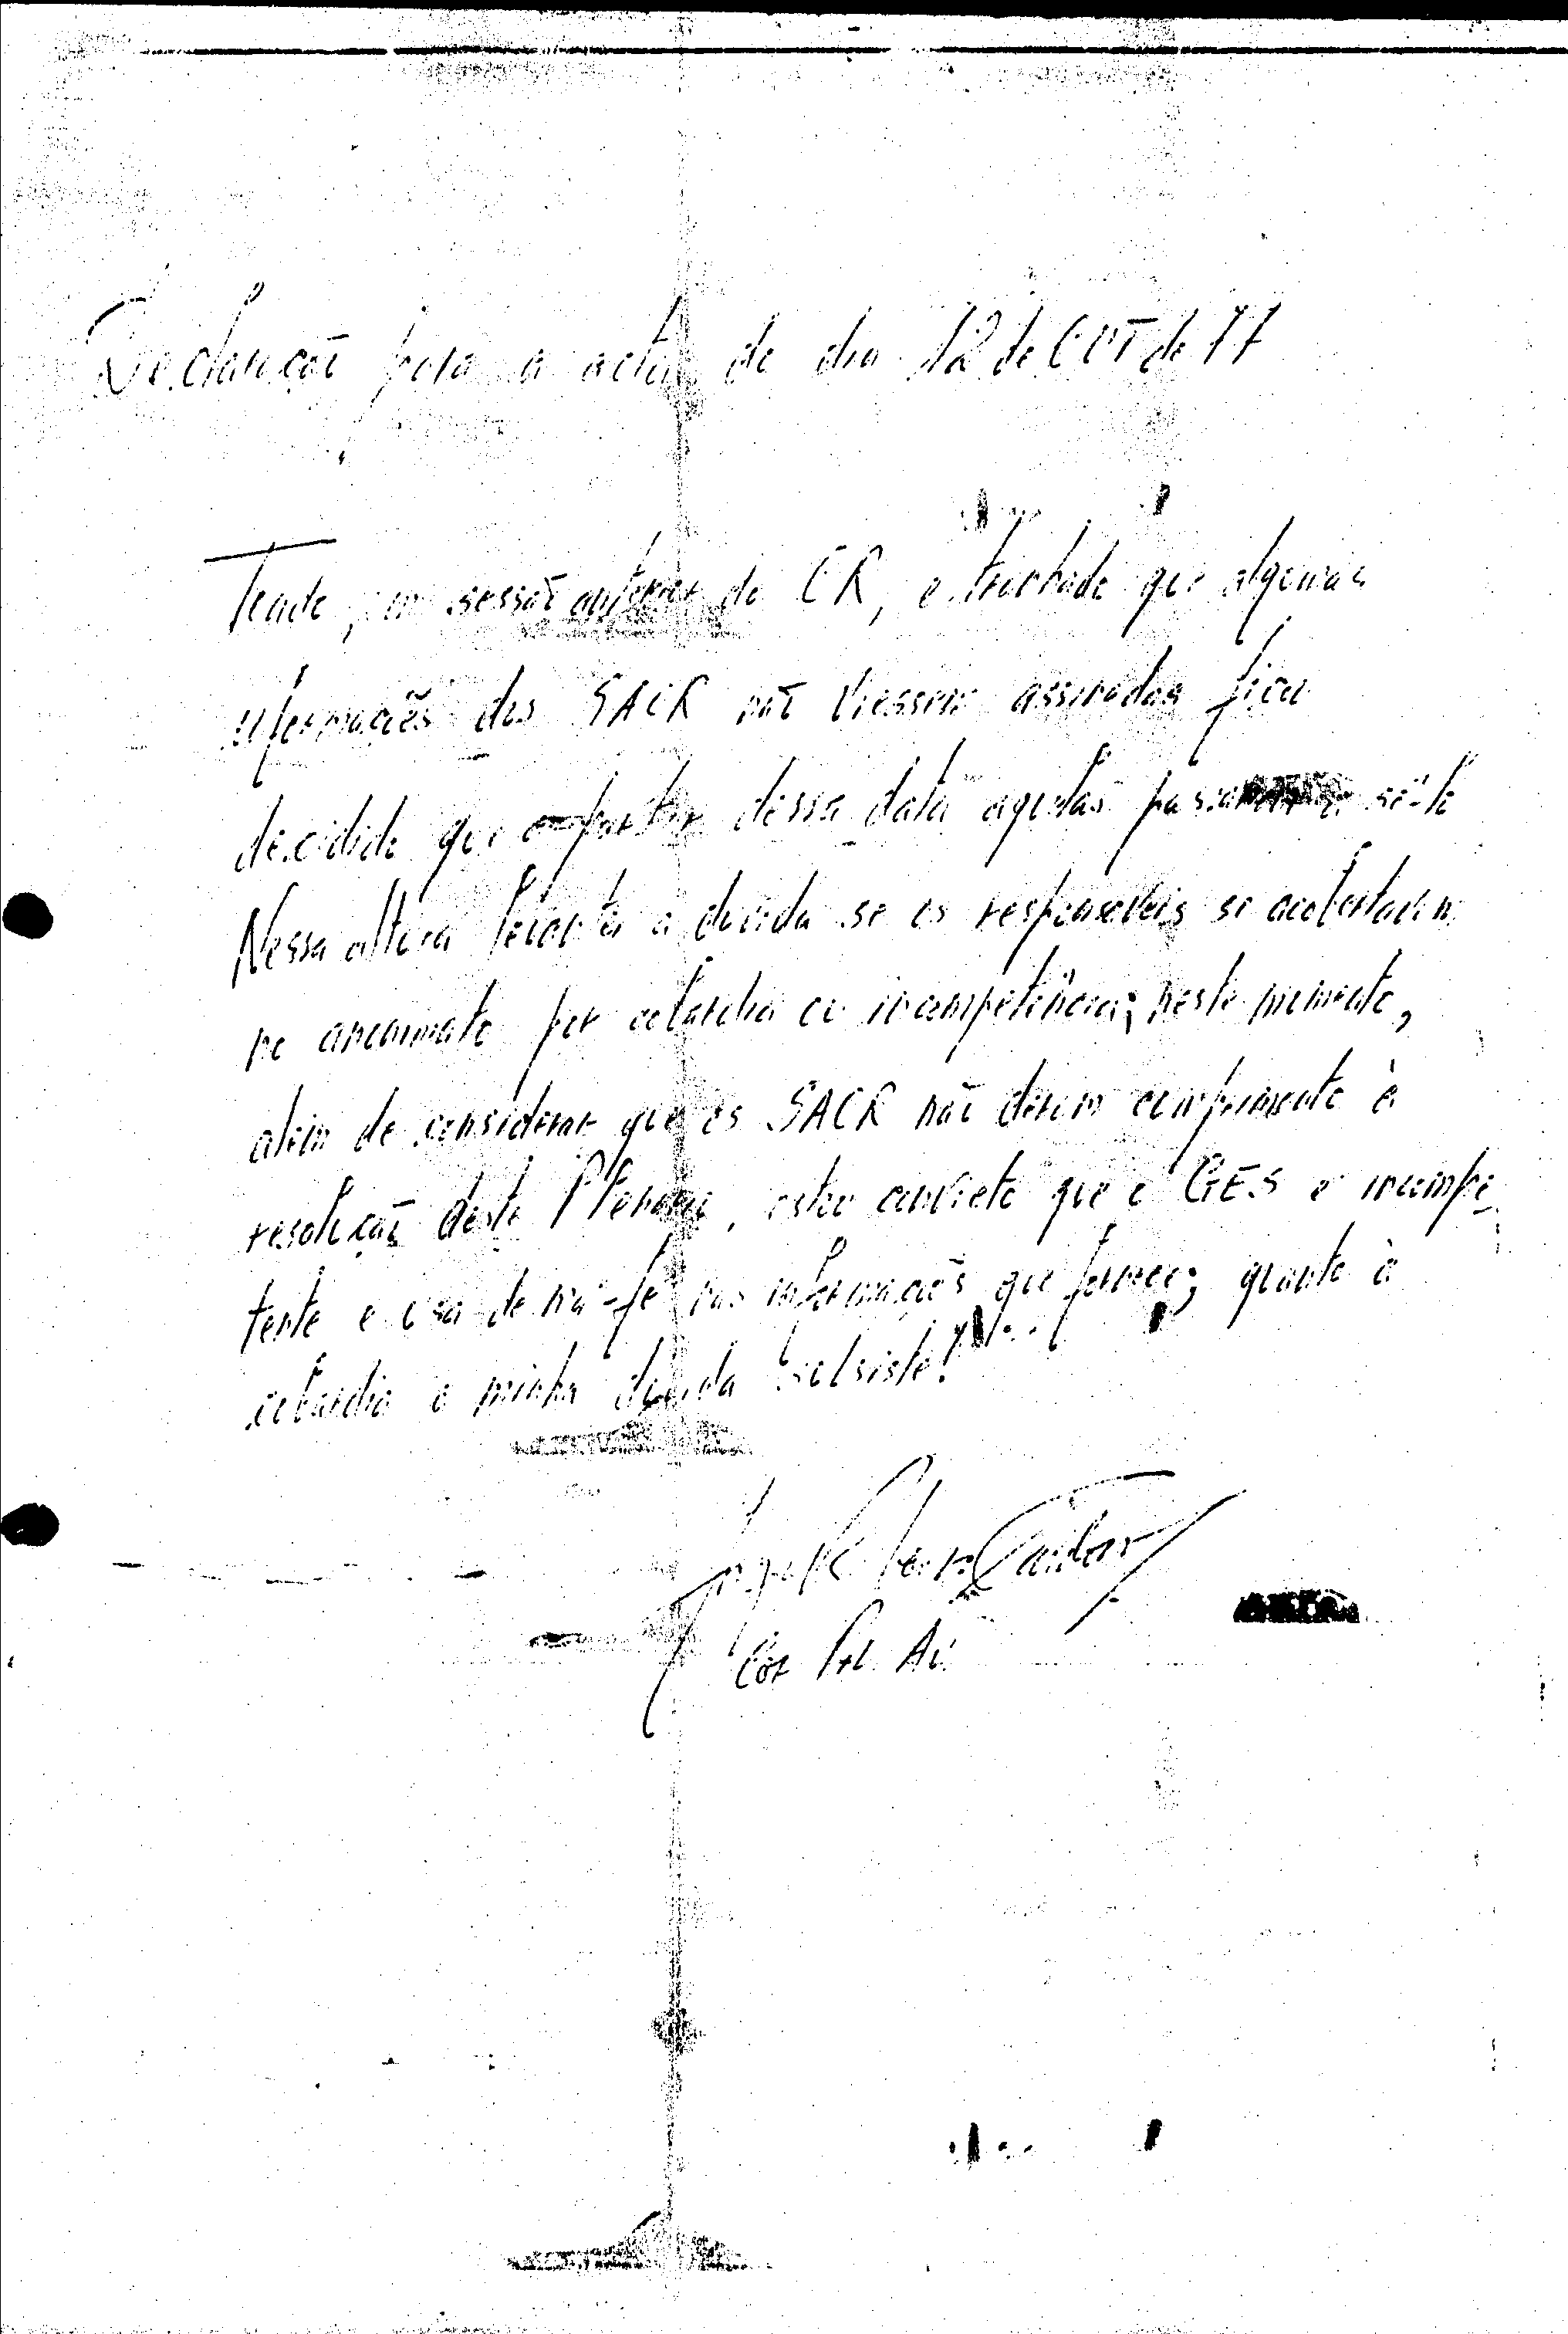 Declaração para a acta do dia 12 de OUT de 77
Tendo, em sessão anterior do CR, estranhado que algumas
informações dos SACR não viessem assinadas ficou
decidido que a partir dessa data aquelas passariam a sê-lo
Nessa altura levantei a dúvida se os responsáveis se acobertavam
no anonimato por cobardia ou incompetência; neste momento,
além de considerar que os SACR não deram cumprimento à
resolução deste Plenário, estou convicto que o GES é incompe_
tente e usa de má-fé nas informações que fornece; quanto à
cobardia a minha dúvida subsiste!
Canto
Cap Pil Av.